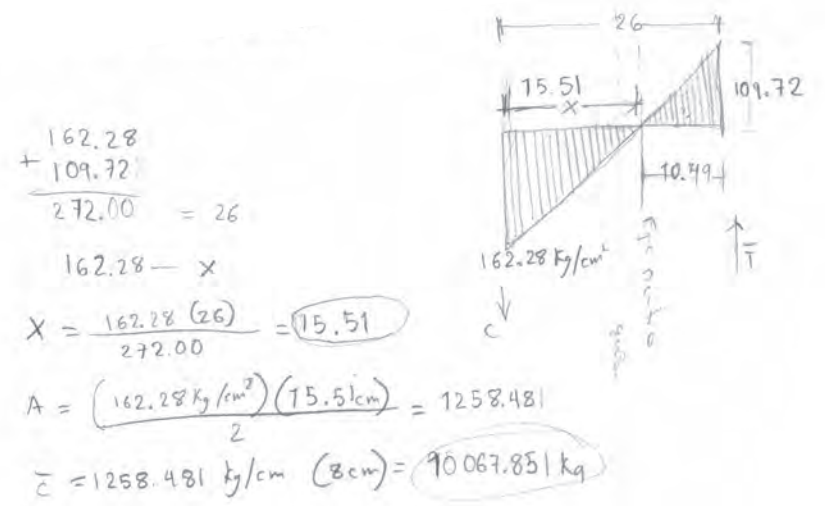 26
15.51
x
109.72
10.49
162.28 Kg/cm²
C
T̅
162.28
+ 109.72
272.00 = 26
162.28 — x
X = 162.28 (26) / 272.00 = 15.51
A = (162.28 Kg/cm²)(15.51cm) / 2 = 1258.481
c̅ = 1258.481 kg/cm (8cm) = 10067.851 kg